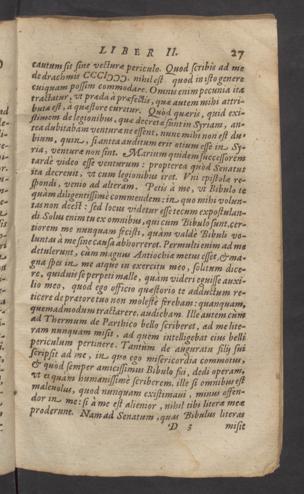 LIBER II. 27
cautum sit sine vecturæ periculo. Quod scribis ad me
de drachmis CCCIƆƆƆ. nihil est quod in isto genere
cuiquam possim commodare. Omnis enim pecunia ita
tractatur, ut præda à præfectis, quæ autem mihi attri-
buta est, à quæstore curetur. Quod quæris, quid exi-
stimem de legionibus, quæ decretæ sunt in Syriam, an-
tea dubitabam venturæne essent, nunc mihi non est du-
bium, quin, si antea auditum erit otium esse in Sy-
ria, venturæ non sint. Marium quidem successorem
tardè video esse venturum: propterea quòd Senatus
ita decrevit, ut cum legionibus iret. Uni epistolæ re-
spondi, venio ad alteram. Petis à me, ut Bibulo te
quàm diligentissimè commendem: in quo mihi volun-
tas non deest: sed locus videtur esse tecum expostulan-
di. Solus enim tu ex omnibus, qui cum Bibulo sunt, cer-
tiorem me nunquam fecisti, quàm valdè Bibuli vo-
luntas à me sine causa abhorreret. Permulti enim ad me
detulerunt, cùm magnus Antiochiæ metus esset, & ma-
gna spes in me atque in exercitu meo, solitum dice-
re, quidvis se perpeti malle, quàm videri eguisse auxi-
lio meo, quod ego officio quæstorio te adductum re-
ticere de prætore tuo non molestè ferebam: quanquam,
quemadmodum tractarere, audiebam. Ille autem cùm
ad Thermum de Parthico bello scriberet, ad me lite-
ram nunquam misit, ad quem intelligebat eius belli
periculum pertinere. Tantùm de auguratu filij sui
scripsit ad me, in quo ego misericordia commotus,
& quòd semper amicissimus Bibulo fui, dedi operam,
ut ei quàm humanissimè scriberem. ille si omnibus est
malevolus, quod nunquam existimavi, minus offen-
dor in me: si à me est alienior, nihil tibi literæ meæ
proderunt. Nam ad Senatum, quas Bibulus literas
D 3 misit